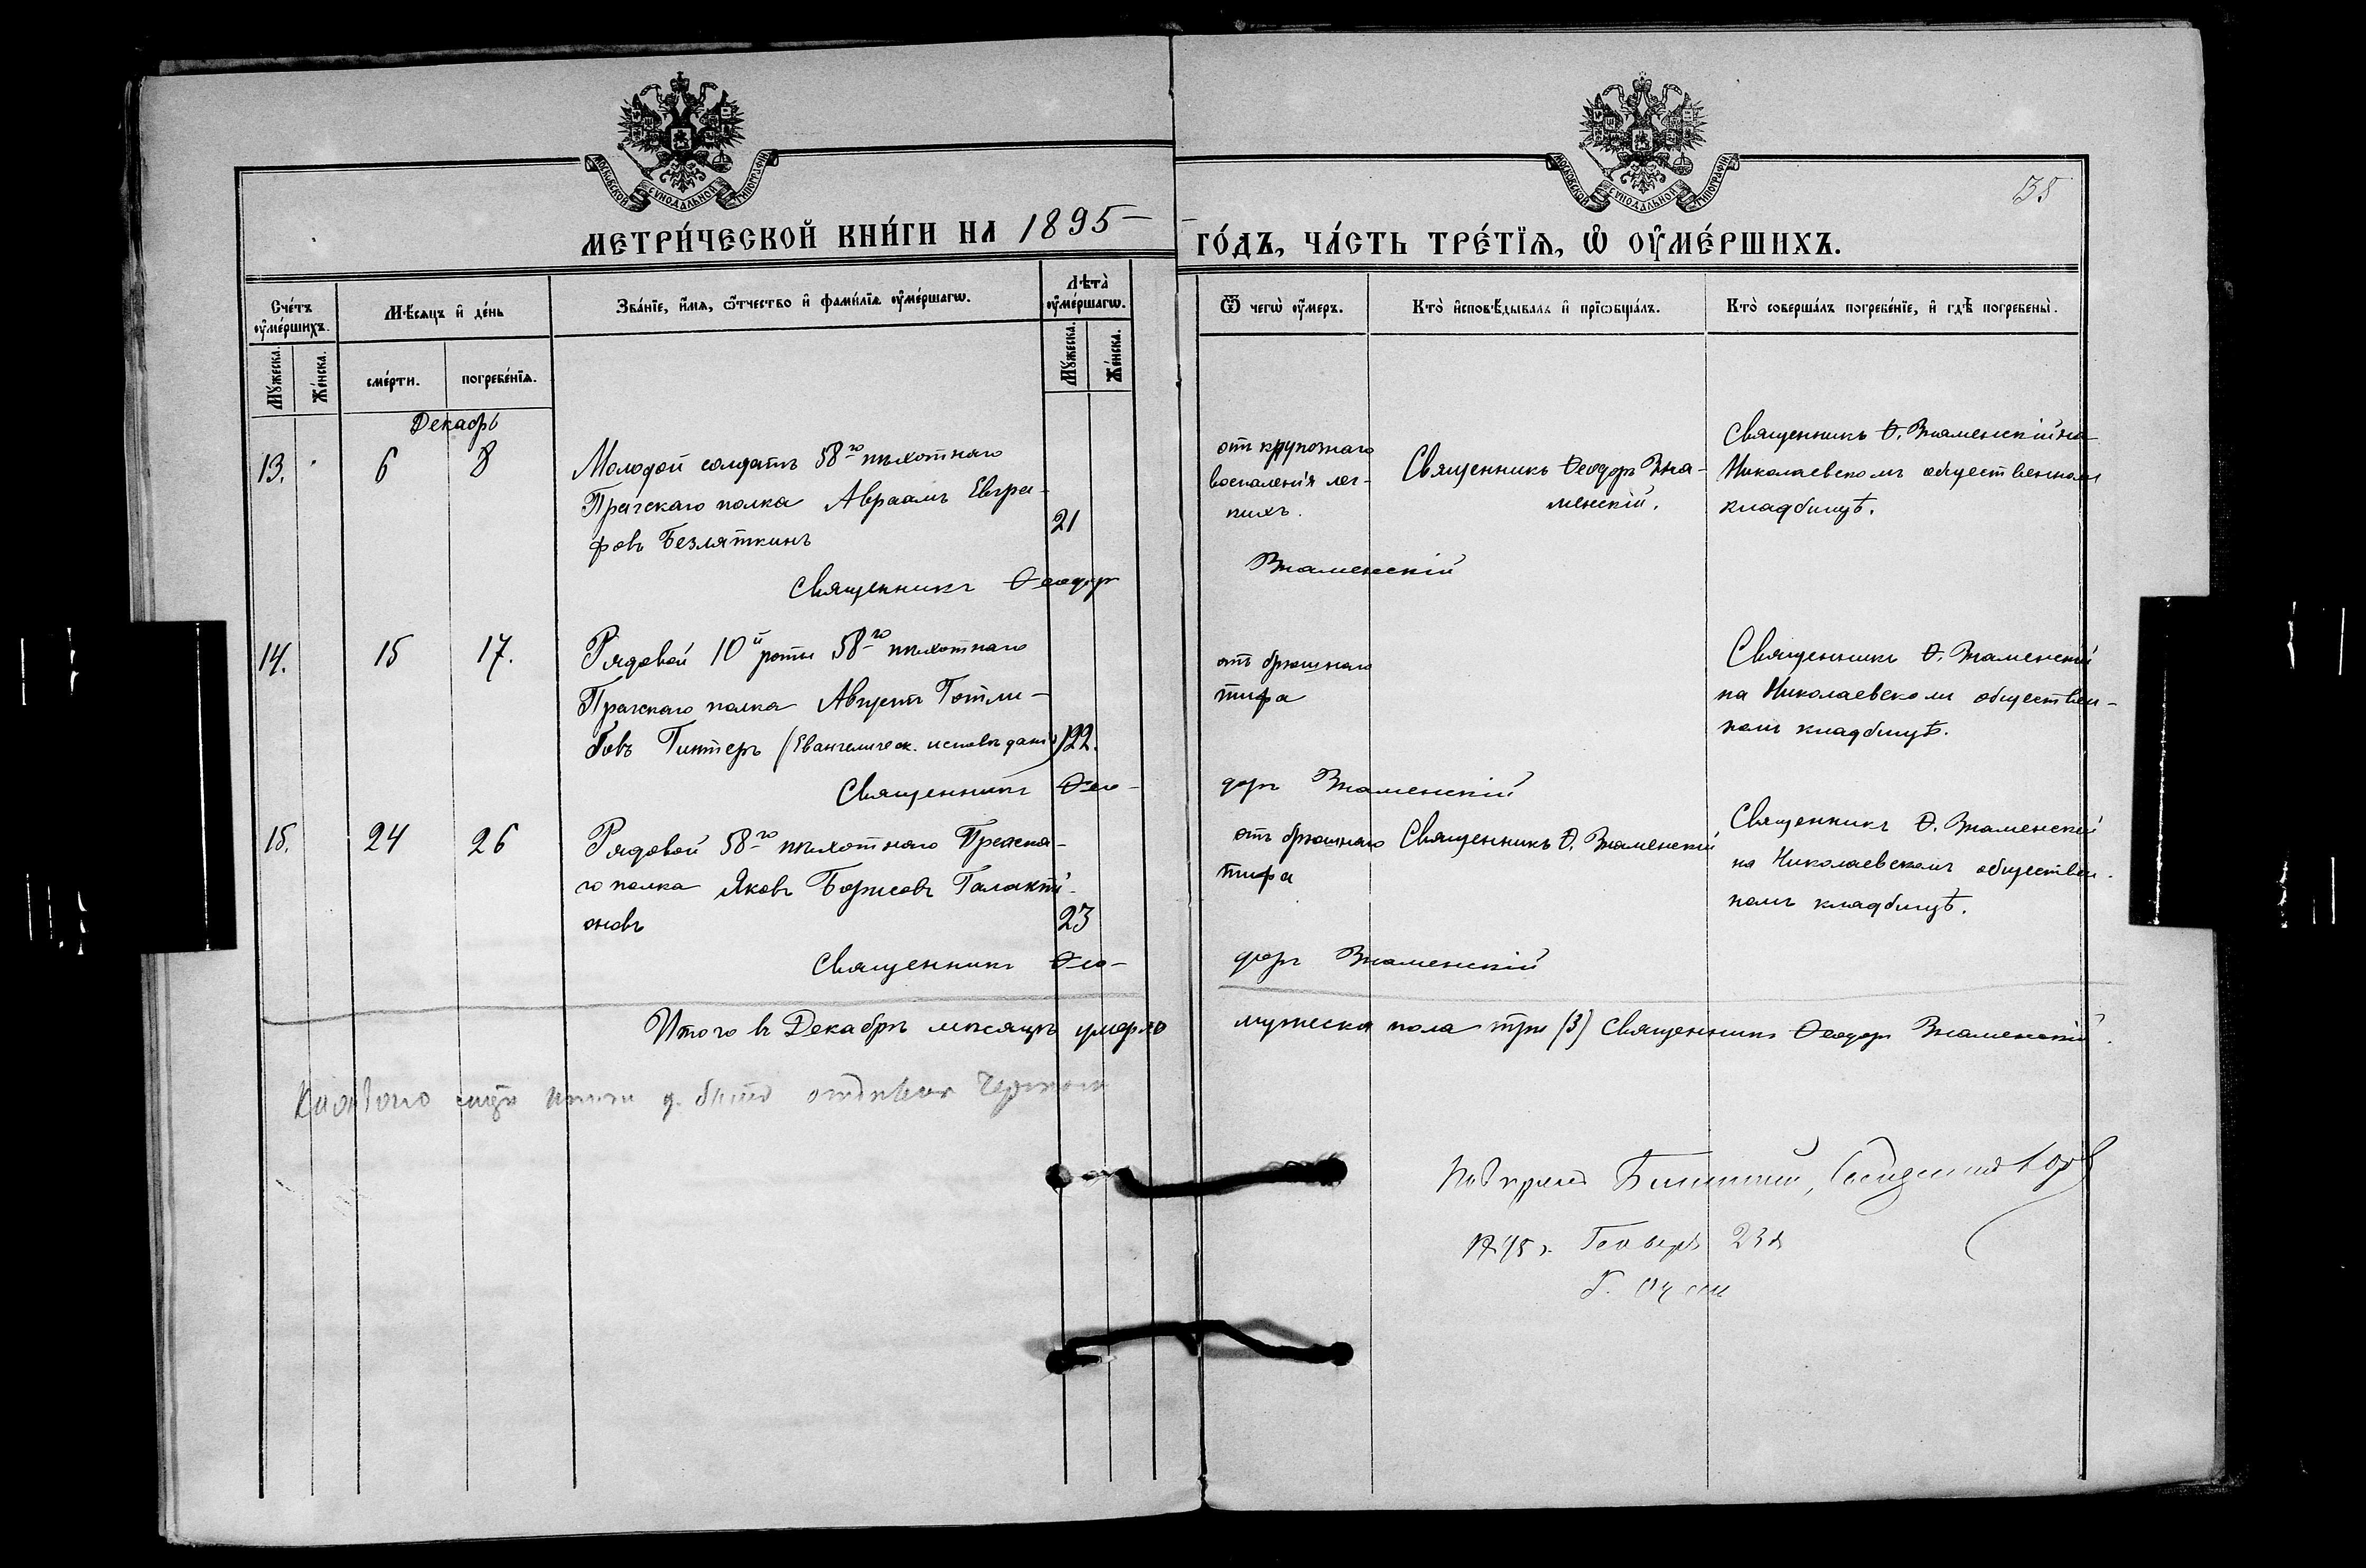 МОСКОВСКОЙ СѴНОДАЛЬНОЙ ТИПОГРАФІИ
МОСКОВСКОЙ СѴНОДАЛЬНОЙ ТИПОГРАФІИ
МЕТРИ́ЧЕСКОЙ КНИ́ГИ НА 1895
ГО́ДЪ, ЧА́СТЬ ТРЕ́ТЇѦ, Ѡ҆ ОУ҆МЕ́РШИХЪ.
Сче́тъ оу҆ме́ршихъ.
Мꙋ́жеска.
Же́нска.
Мѣ́сяцъ и҆ де́нь
сме́рти.
погребе́нїѧ.
Зва́нїе, и҆́мѧ, ѻ҆́тчество и҆ фами́лїѧ оу҆ме́ршагѡ.
Лѣ́та оу҆ме́ршагѡ.
Мꙋ́жеска.
Же́нска.
Ѿ чегѡ̀ оу҆́меръ.
Кто̀ и҆сповѣ́дывалъ и҆ прїѡбща́лъ.
Кто̀ соверша́лъ погребе́нїе, и҆ гдѣ̀ погребены̀.
Декабрь
13. 6 8
Молодой солдатъ 58го пѣхотнаго
Пражскаго полка Авраамъ Евгра-
фовъ Безляткинъ
21
от крупознаго
воспаленія лег-
кихъ.
Священникъ Ѳеодоръ Зна-
менскій.
Священникъ Ѳ. Знаменскій на
Николаевскомъ общественномъ
кладбищѣ.
Священникъ Ѳеодоръ Знаменскій
14. 15 17.
Рядовой 10й роты 58го пѣхотнаго
Пражскаго полка Августъ Готли-
бовъ Гинтеръ (Евангелическ. исповѣданія)
22.
отъ брюшнаго
тифа
Священникъ Ѳ. Знаменскій
на Николаевскомъ обществен-
номъ кладбищѣ.
Священникъ Ѳео-
доръ Знаменскій
15. 24 26
Рядовой 58го пѣхотнаго Пражска-
го полка Яковъ Борисовъ Галакті-
оновъ
23
отъ брюшнаго
тифа
Священникъ Ѳ. Знаменскій
Священникъ Ѳ. Знаменскій
на Николаевскомъ обществен-
номъ кладбищѣ.
Священникъ Ѳео-
доръ Знаменскій
Итого въ Декабрѣ мѣсяцѣ умерло мужеска пола три (3) Священникъ Ѳеодоръ Знаменскій.